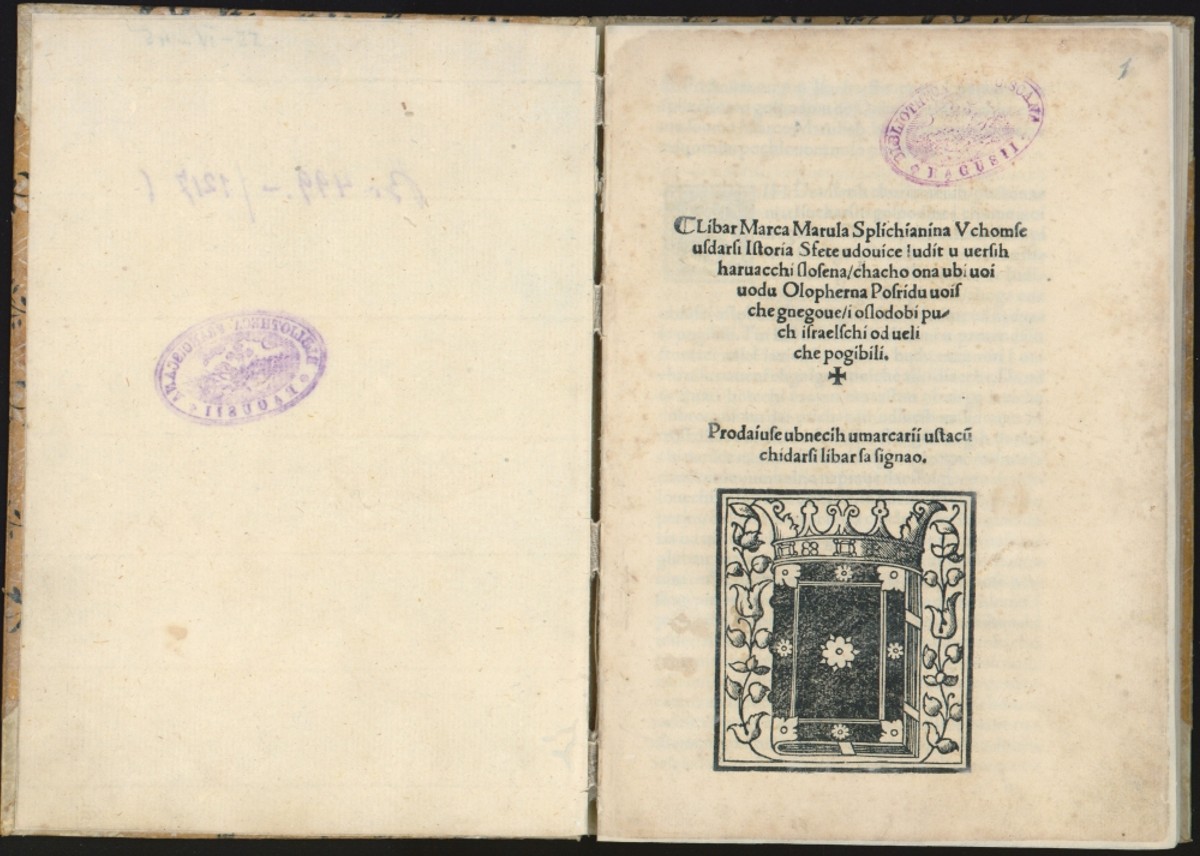 1
ⅭLibar Marca Marula Splichianina Vchomſe
uſdarſi Iſtoria Sfete udouice Iudit u uerſih
haruacchi ſloſena/chacho ona ubi uoi
uodu Olopherna Poſridu uoiſ
che gnegoue/i oſlodobi pu⸗
ch iſraelſchi od ueli
che pogibili.
✠
Prodaiuſe ubnecih umarcarii uſtacū
chidarſi libar ſa ſignao.